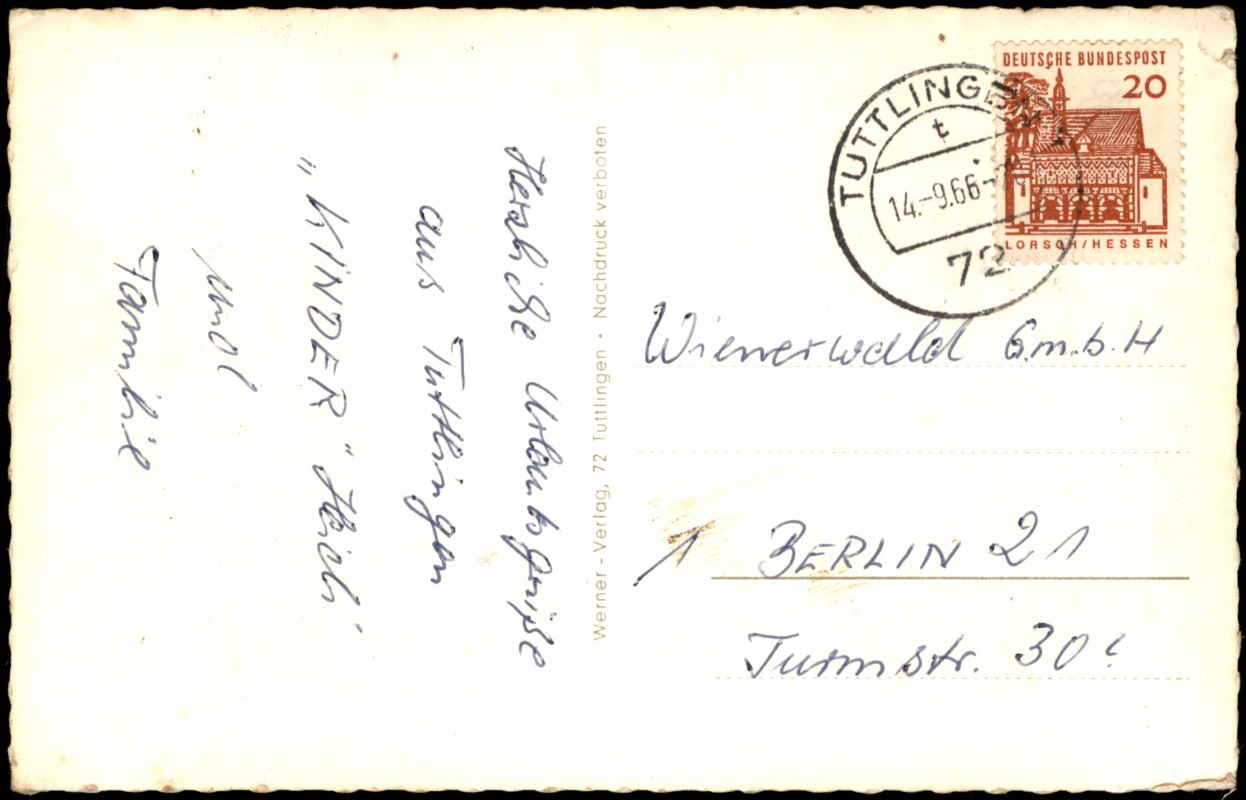 Herzliche Urlaubsgrüße
aus Tuttlingen
„KINDER“
und
Familie
Werner - Verlag, 72 Tuttlingen • Nachdruck verboten
TUTTLINGEN
t
14.-9.66
72
DEUTSCHE BUNDESPOST
20
LORSCH/HESSEN
Wienerwald G.m.b.H
1 BERLIN 21
Turmstr. 30